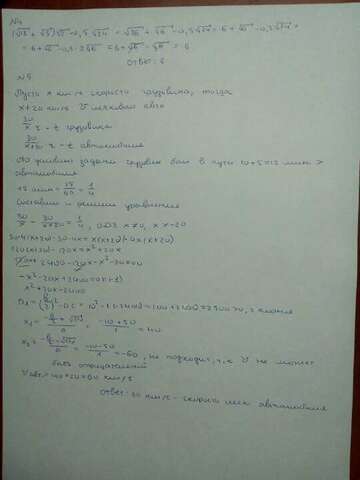 №4
(√18 + √3)√2 - 0,5√24 = √36 + √6 - 0,5√24 = 6 + √6 - 0,5√24 =
= 6 + √6 - 0,5·2√6 = 6 + √6 - √6 = 6
Ответ: 6
№5
Пусть x км/ч скорость грузовика, тогда
x+20 км/ч V легкового авто
30/x ч - t грузовика
30/x+20 ч - t автомобиля
По условию задачи грузовик был в пути 10+5=15 мин >
автомобиля
15 мин = 15/60 = 1/4
Составим и решим уравнение
30/x - 30/x+20 = 1/4, ОДЗ x≠0, x≠-20
30·4(x+20) - 30·4x = x(x+20)
120(x+20) - 120x = x²+20x
2400
-x² - 20x + 2400 = 0
x² + 20x - 2400
= 10² + 2400 = 100 + 2400 = 2500 > 0, 2 корня
x₁ = = -10+50/1 = 40
x₂ = = -10-50/1 = -60, не подходит, т.к V не может
быть отрицательной
V авт = 40+20=60 км/ч
Ответ: км/ч - скорость автомобиля